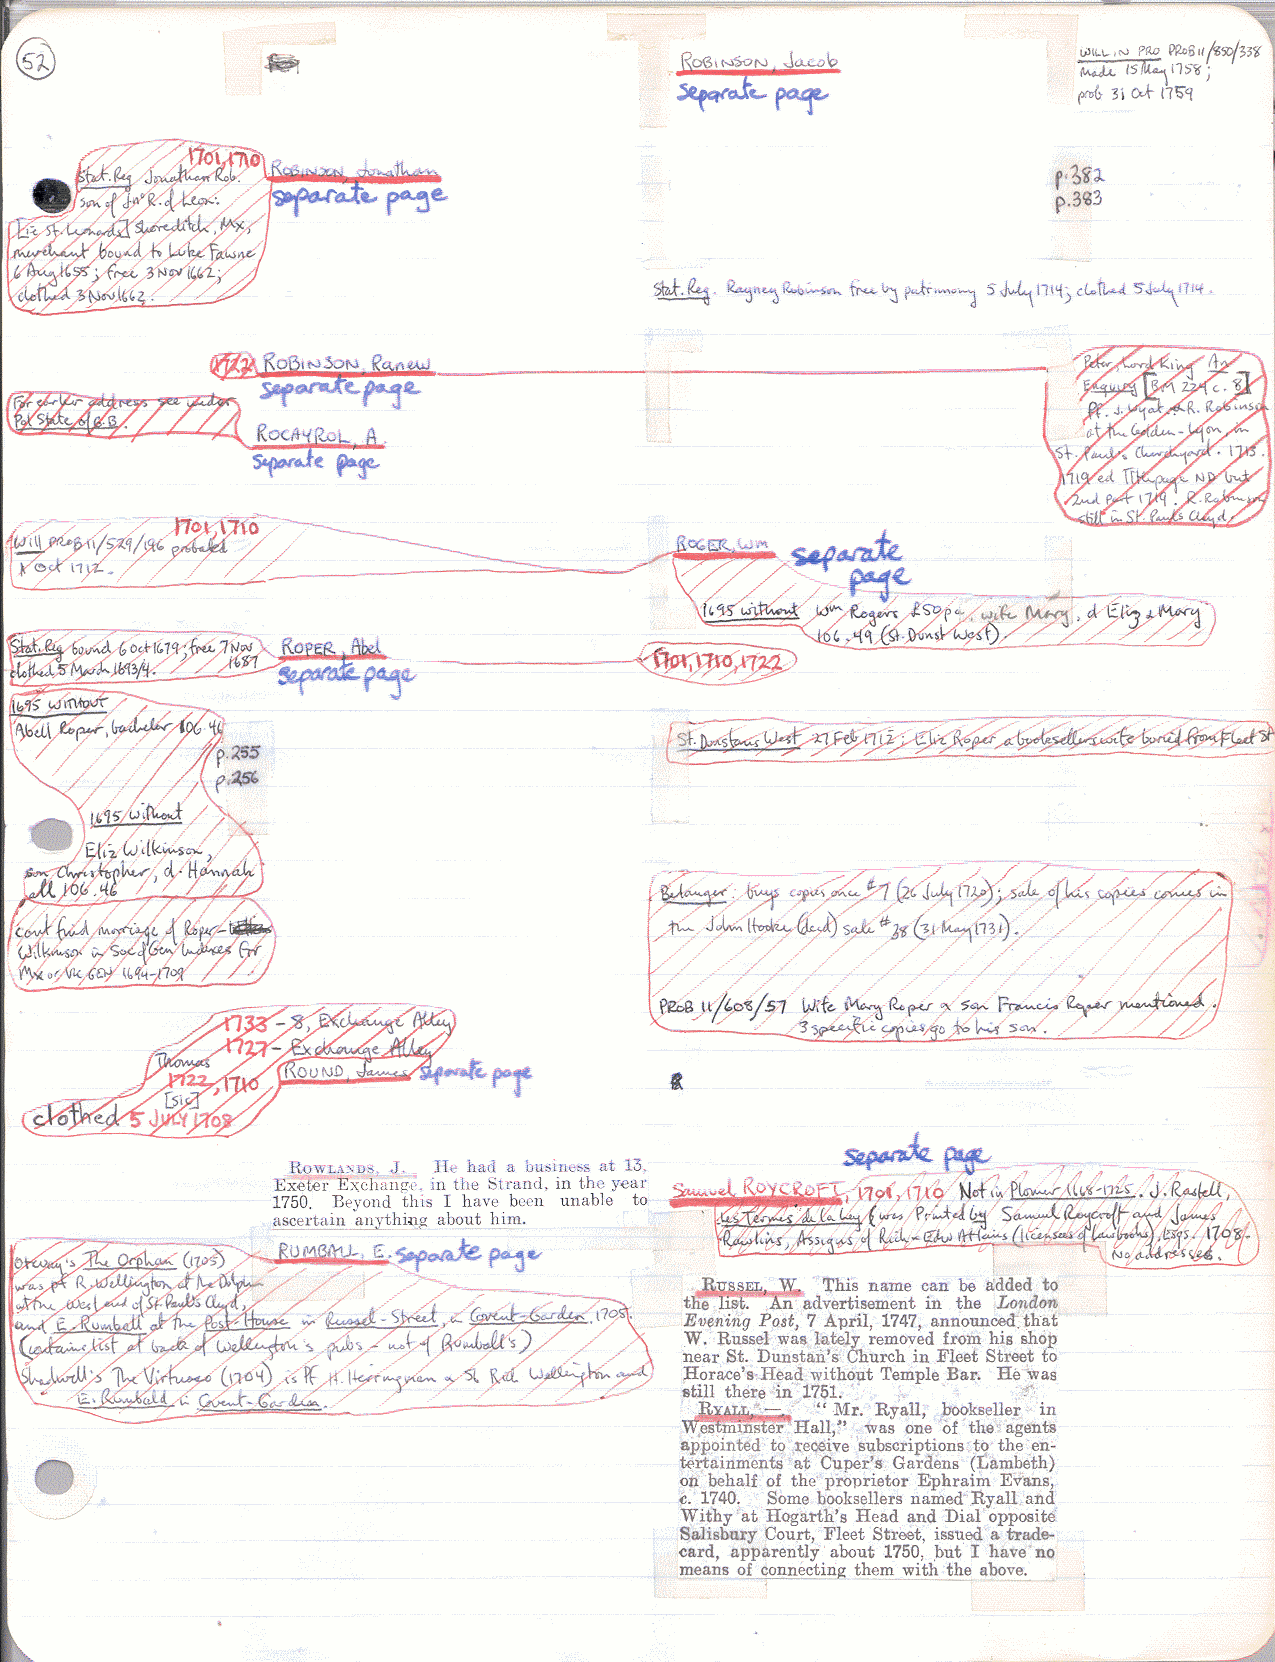 52
ROBINSON, Jacob
separate page
WILL IN PRO PROB11/850/338
made 15 May 1758;
prob 31 Oct 1759
1701, 1710
Stat. Reg Jonathan Rob.
son of Jn° R. of Leon:
[ie St. Leonards] Shoreditch, Mx,
merchant bound to Luke Fawne
6 Aug 1655; free 3 Nov 1662;
clothed 3 Nov 1662.
ROBINSON, Jonathan
separate page
p.382
p.383
Stat. Reg. Rayney Robinson free by patrimony 5 July 1714; clothed 5 July 1714.
1722 ROBINSON, Ranew
separate page
For earlier address see under
Pol State of G.B.
ROCAYROL, A.
separate page
Peter, Lord King An
Enquiry [BM 224 c. 8]
Pt. J. Wyat & R. Robinson
at the Golden-Lyon, in
St. Paul's Churchyard. 1713.
1719 ed Titlepage ND but
2nd part 1719. R. Robinson
still in St. Pauls Chyd.
1701, 1710
Will PROB11/529/196 probated
Oct 1712.
ROGER, Wm
separate
page
1695 without Wm Rogers £50pa, wife Mary, d Eliz & Mary
106.49 (St. Dunst West).
Stat. Reg bound 6 Oct 1679; free 7 Nov
1687
clothed 5 March 1693/4.
ROPER, Abel
separate page
1701, 1710, 1722
1695 WITHOUT
Abell Roper, bachelor 106.46
p.255
p.256
St. Dunstans West 27 Feb 1712; Eliz Roper a booksellers wife buried from Fleet St
1695 without
Eliz Wilkinson,
son Christopher, d. Hannah
all 106.46
cant find marriage of Roper-
Wilkinson in Soc of Gen indexes for
Mx or Vic GEN 1694-1709
Belanger: buys copies once #7 (26 July 1720); sale of his copies comes in
the John Hooke (decd) sale #38 (31 May 1731).
PROB 11/608/57 Wife Mary Roper & son Francis Roper mentioned.
3 specific copies go to his son.
1733 - 8, Exchange Alley
1727 - Exchange Alley
Thomas
1722, 1710
[sic]
ROUND, James separate page
clothed 5 JULY 1708
ROWLANDS, J. He had a business at 13,
Exeter Exchange, in the Strand, in the year
1750. Beyond this I have been unable to
ascertain anything about him.
separate page
Samuel ROYCROFT, 1701, 1710 Not in Plomer 1668-1725. J. Rastell,
Les Termes de la Ley (was Printed by Samuel Roycroft and James
Rawlins, Assigns of Rich & Edw Atkins (licensees of lawbooks), Esqs. 1708-
No addresses.
RUMBALL, E. separate page
Otway's The Orphan (1705)
was pt R. Wellington at the Dolphin
at the West end of St. Paul's Chyd,
and E. Rumball at the Post-House in Russel-Street, in Covent-Garden, 1705.
(contains list at back of Wellington's pubs - not of Rumball's)
Shadwell's The Virtuoso (1704) is Pt H. Herringman & sb Rich Wellington and
E. Rumbald in Covent-Garden.
RUSSEL, W. This name can be added to
the list. An advertisement in the London
Evening Post, 7 April, 1747, announced that
W. Russel was lately removed from his shop
near St. Dunstan's Church in Fleet Street to
Horace's Head without Temple Bar. He was
still there in 1751.
RYALL, —. "Mr. Ryall, bookseller in
Westminster Hall," was one of the agents
appointed to receive subscriptions to the en-
tertainments at Cuper's Gardens (Lambeth)
on behalf of the proprietor Ephraim Evans,
c. 1740. Some booksellers named Ryall and
Withy at Hogarth's Head and Dial opposite
Salisbury Court, Fleet Street, issued a trade-
card, apparently about 1750, but I have no
means of connecting them with the above.